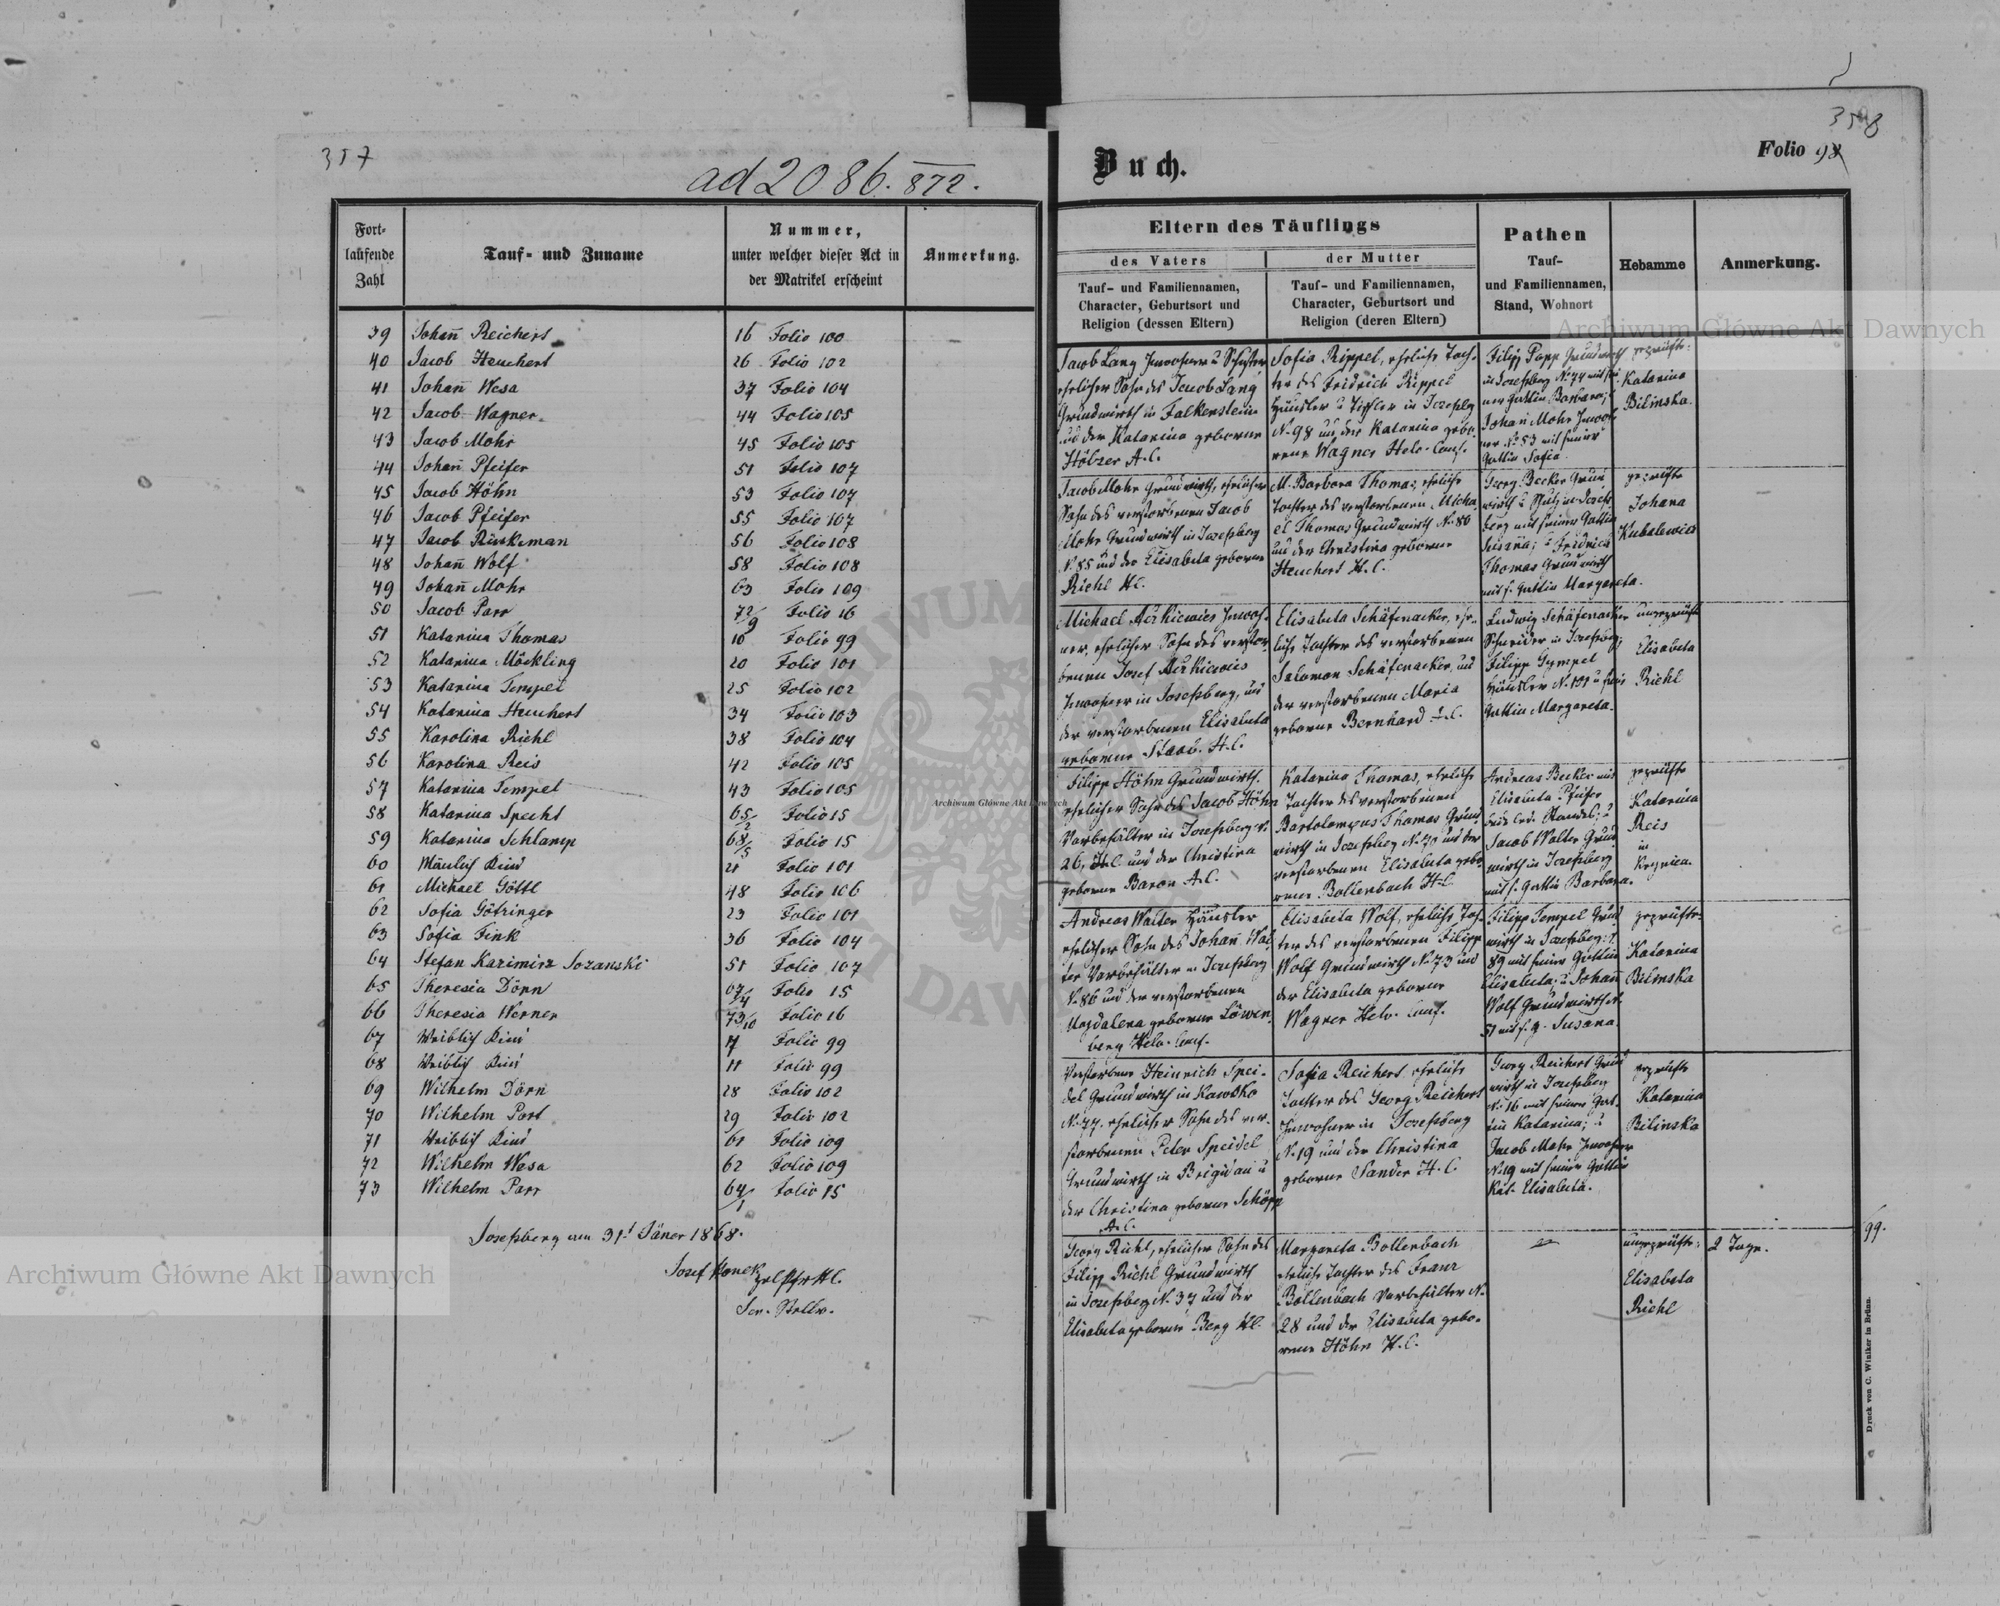 357
ad 2086. 872.
Fort-
laufende
Zahl
Tauf- und Zuname
Nummer,
unter welcher dieser Act in
der Matrikel erscheint
Anmerkung.
39 Johañ Reichert 16 Folio 100
40 Jacob Heuchert 26 Folio 102
41 Johañ Wesa 37 Folio 104
42 Jacob Wagner 44 Folio 105
43 Jacob Mohr 45 Folio 105
44 Johañ Pfeifer 51 Folio 107
45 Jacob Höhn 53 Folio 107
46 Jacob Pfeifer 55 Folio 107
47 Jacob 56 Folio 108
48 Johañ Wolf 58 Folio 108
49 Johañ Mohr 63 Folio 109
50 Jacob Parr 72/9 Folio 16
51 Katarina Thomas 10 Folio 99
52 Katarina Möckling 20 Folio 101
53 Katarina Tempel 25 Folio 102
54 Katarina Heuchert 34 Folio 103
55 Karolina Riehl 38 Folio 104
56 Karolina Reis 42 Folio 105
57 Katarina Tempel 43 Folio 105
58 Katarina Specht 65/2 Folio 15
59 Katarina Schlamp 68/5 Folio 15
60 Mänlich Kind 21 Folio 101
61 Michael Göttl 48 Folio 106
62 Sofia Götzinger 23 Folio 101
63 Sofia Fink 36 Folio 104
64 Stefan Kazimirz Sozanski 51 Folio 107
65 Theresia Dörn 67/4 Folio 15
66 Theresia Werner 73/10 Folio 16
67 Weiblich Kind Folio 99
68 Weiblich Kind 11 Folio 99
69 Wilhelm Dörn 28 Folio 102
70 Wilhelm Port 29 Folio 102
71 Weiblich Kind 61 Folio 109
72 Wilhelm Wesa 62 Folio 109
73 Wilhelm Parr 64/1 Folio 15
Josefsberg am 31t Jäner 1868.
Josef
358
Buch.
Folio 98
Eltern des Täuflings
des Vaters
Tauf- und Familiennamen,
Character, Geburtsort und
Religion (dessen Eltern)
der Mutter
Tauf- und Familiennamen,
Character, Geburtsort und
Religion (deren Eltern)
Pathen
Tauf-
und Familiennamen,
Stand, Wohnort
Hebamme
Anmerkung.
Jacob Lang Inwohner u Schuster
ehelicher Sohn des Jacob Lang
Grundwirth in Falkenstein
und der Katarina geborne
A.C.
Sofia Rippel, eheliche Toch-
ter des Fridrich Rippel
Häusler u Tischler in Josefsbg
N. 98 und der Katarina gebo-
rene Wagner Helv. Conf.
Filipp Popp Grundwirth
in Josefsberg N. 74 mit sei-
ner Gattin Barbara; u
Johañ Mohr Inwoh-
ner N. 53 mit seiner
Gattin Sofia
geprüfte:
Katarina
Bilinska.
Jacob Mohr Grundwirth, ehelicher
Sohn des verstorbenen Jacob
Mohr Grundwirth in Josefsberg
N. 85 und der Elisabeta geborne
Riehl H.C.
M. Barbara Thomas, eheliche
Tochter des verstorbenen Micha
el Thomas Grundwirth N. 80
und der Christina geborne
Heuchert H.C.
Georg Becker Grund
wirth u in Josefs
berg mit seiner Gattin
Susaña; u Fridrich
Thomas Grundwirth
mit s. Gattin Margareta.
geprüfte
Johana
Kubalewicz
Michael Inwoh-
ner, ehelicher Sohn des verstor-
benen Josef
Inwohner in Josefsberg, und
der verstorbenen Elisabeta
geborne Staab. H.C.
Elisabeta Schäfenacker, ehe-
liche Tochter des verstorbenen
Salomon Schäfenacker, und
der verstorbenen Maria
geborne Bernhard H.C.
Ludwig Schäfenacker
Schneider in Josefsberg;
Filipp Gympel
Häusler N. 101 u seine
Gattin Margareta.
ungeprüfte
Elisabeta
Riehl
Filipp Höhn Grundwirth,
ehelicher Sohn des Jacob Höhn
Vorbehälter in Josefsberg N.
26, H.C. und der Christina
geborne Baron A.C.
Katarina Thomas, eheliche
Tochter des verstorbenen
Bartolomeus Thomas Grund
wirth in Josefsberg N. 70 und der
verstorbenen Elisabeta gebo-
rene Bollenbach H.C.
Andreas Becker mit
Elisabeta Pfeifer
beide led. Standes; u
Jacob Walter Grund
wirth in Josefsberg
mit s. Gattin Barbara.
geprüfte
Katarina
Reis
in
Krynica.
Andreas Walter Häusler
ehelicher Sohn des Johañ Wal
ter Vorbehälter in Josefsberg
N. 86 und der verstorbenen
Magdalena geborne Löwen
berg Helv. Conf.
Elisabeta Wolf, eheliche Toch
ter des verstorbenen Filipp
Wolf Grundwirth N. 73 und
der Elisabeta geborne
Wagner Helv. Conf.
Filipp Tempel Grund
wirth in Josefsberg N.
89 mit seiner Gattin
Elisabeta; u Johañ
Wolf Grundwirth N.
51 mit s. g. Susana.
geprüfte
Katarina
Bilinska
Verstorbene Heinrich Spei-
del Grundwirth in Kawsko
N. 77. ehelicher Sohn des ver-
storbenen Peter Speidel
Grundwirth in Brigidau u
der Christina geborne Schöpp
A.C.
Sofia Reichert eheliche
Tochter des Georg Reichert
Inwohner in Josefsberg
N. 19 und der Christina
geborne Sander H.C.
Georg Reichert Grund
wirth in Josefsberg
N. 16 mit seiner Gat-
tin Katarina; u
Jacob Mohr Inwohner
N. 19 mit seiner Gattin
Kat. Elisabeta.
geprüfte
Katarina
Bilinska
Georg Riehl, ehelicher Sohn des
Filipp Riehl Grundwirth
in Josefsberg N. 37 und der
Elisabeta geborne Berg H.C.
Margareta Bollenbach
eheliche Tochter des Franz
Bollenbach Vorbehälter N.
28 und der Elisabeta gebo-
rene Höhn H.C.
ungeprüfte:
Elisabeta
Riehl
2 Tage.
99.
Druck von C. Winiker in Brünn.
Archiwum Główne Akt Dawnych
Archiwum Główne Akt Dawnych
Archiwum Główne Akt Dawnych